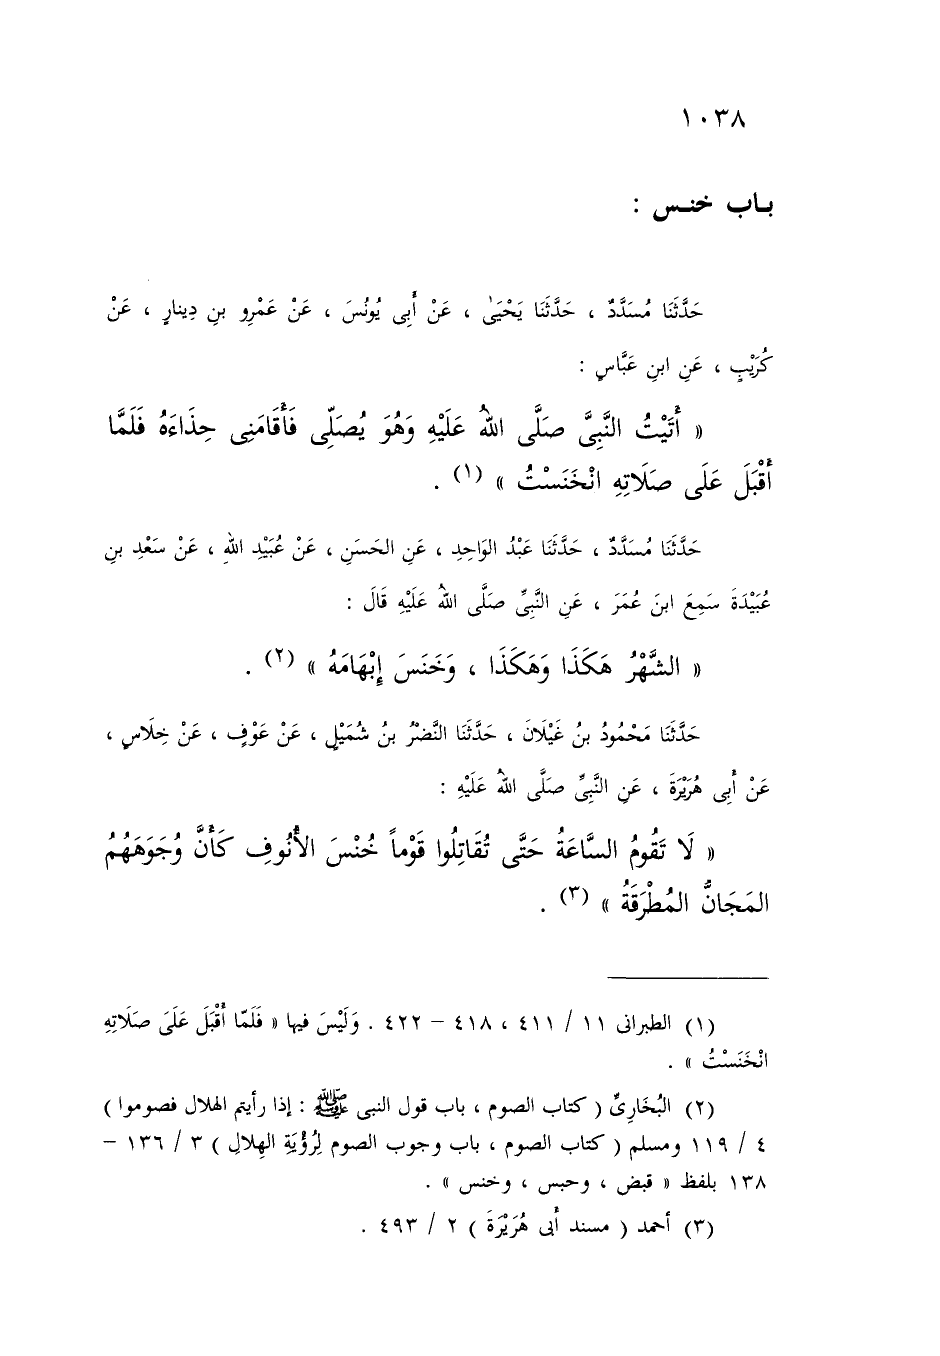 ١٠٣٨
بـاب خنـس :
حَدَّثَنَا مُسَدَّدٌ ، حَدَّثَنَا يَحْيَىٰ ، عَنْ أَبِى يُونُسَ ، عَنْ عَمْرِو بنِ دِينارٍ ، عَنْ
كُرَيْبٍ ، عَنِ ابنِ عَبَّاسٍ :
« أَتَيْتُ النَّبِىَّ صَلَّى اللهُ عَلَيْهِ وَهُوَ يُصَلِّى فَأَقَامَنِى حِذَاءَهُ فَلَمَّا
أَقْبَلَ عَلَى صَلَاتِهِ انْخَنَسْتُ » (١) .
حَدَّثَنَا مُسَدَّدٌ ، حَدَّثَنَا عَبْدُ الوَاحِدِ ، عَنِ الحَسَنِ ، عَنْ عُبَيْدِ اللهِ ، عَنْ سَعْدِ بنِ
عُبَيْدَةَ سَمِعَ ابنَ عُمَرَ ، عَنِ النَّبِىِّ صَلَّى اللهُ عَلَيْهِ قَالَ :
« الشَّهْرُ هَكَذَا وَهَكَذَا ، وَخَنَسَ إِبْهَامَهُ » (٢) .
حَدَّثَنَا مَحْمُودُ بنُ غَيْلَانَ ، حَدَّثَنَا النَّضْرُ بنُ شُمَيْلٍ ، عَنْ عَوْفٍ ، عَنْ خِلَاسٍ ،
عَنْ أَبِى هُرَيْرَةَ ، عَنِ النَّبِىِّ صَلَّى اللهُ عَلَيْهِ :
« لَا تَقُومُ السَّاعَةُ حَتَّى تُقَاتِلُوا قَوْماً خُنْسَ الأُنُوفِ كَأَنَّ وُجَوَهَهُمُ
المَجَانُّ المُطْرَقَةُ » (٣) .
(١) الطبرانى ١١ / ٤١١ ، ٤١٨ – ٤٢٢ . وَلَيْسَ فيها « فَلَمّا أَقْبَلَ عَلَىَ صَلَاتِهِ
انْخَنَسْتُ » .
(٢) البُخَارِىِّ ( كتاب الصوم ، باب قول النبى ﷺ : إذا رأيتم الهلال فصوموا )
٤ / ١١٩ ومسلم ( كتاب الصوم ، باب وجوب الصوم لِرُؤْيَةِ الهِلالِ ) ٣ / ١٣٦ –
١٣٨ بلفظ « قبض ، وحبس ، وخنس » .
(٣) أحمد ( مسند أَبى هُرَيْرَةَ ) ٢ / ٤٩٣ .